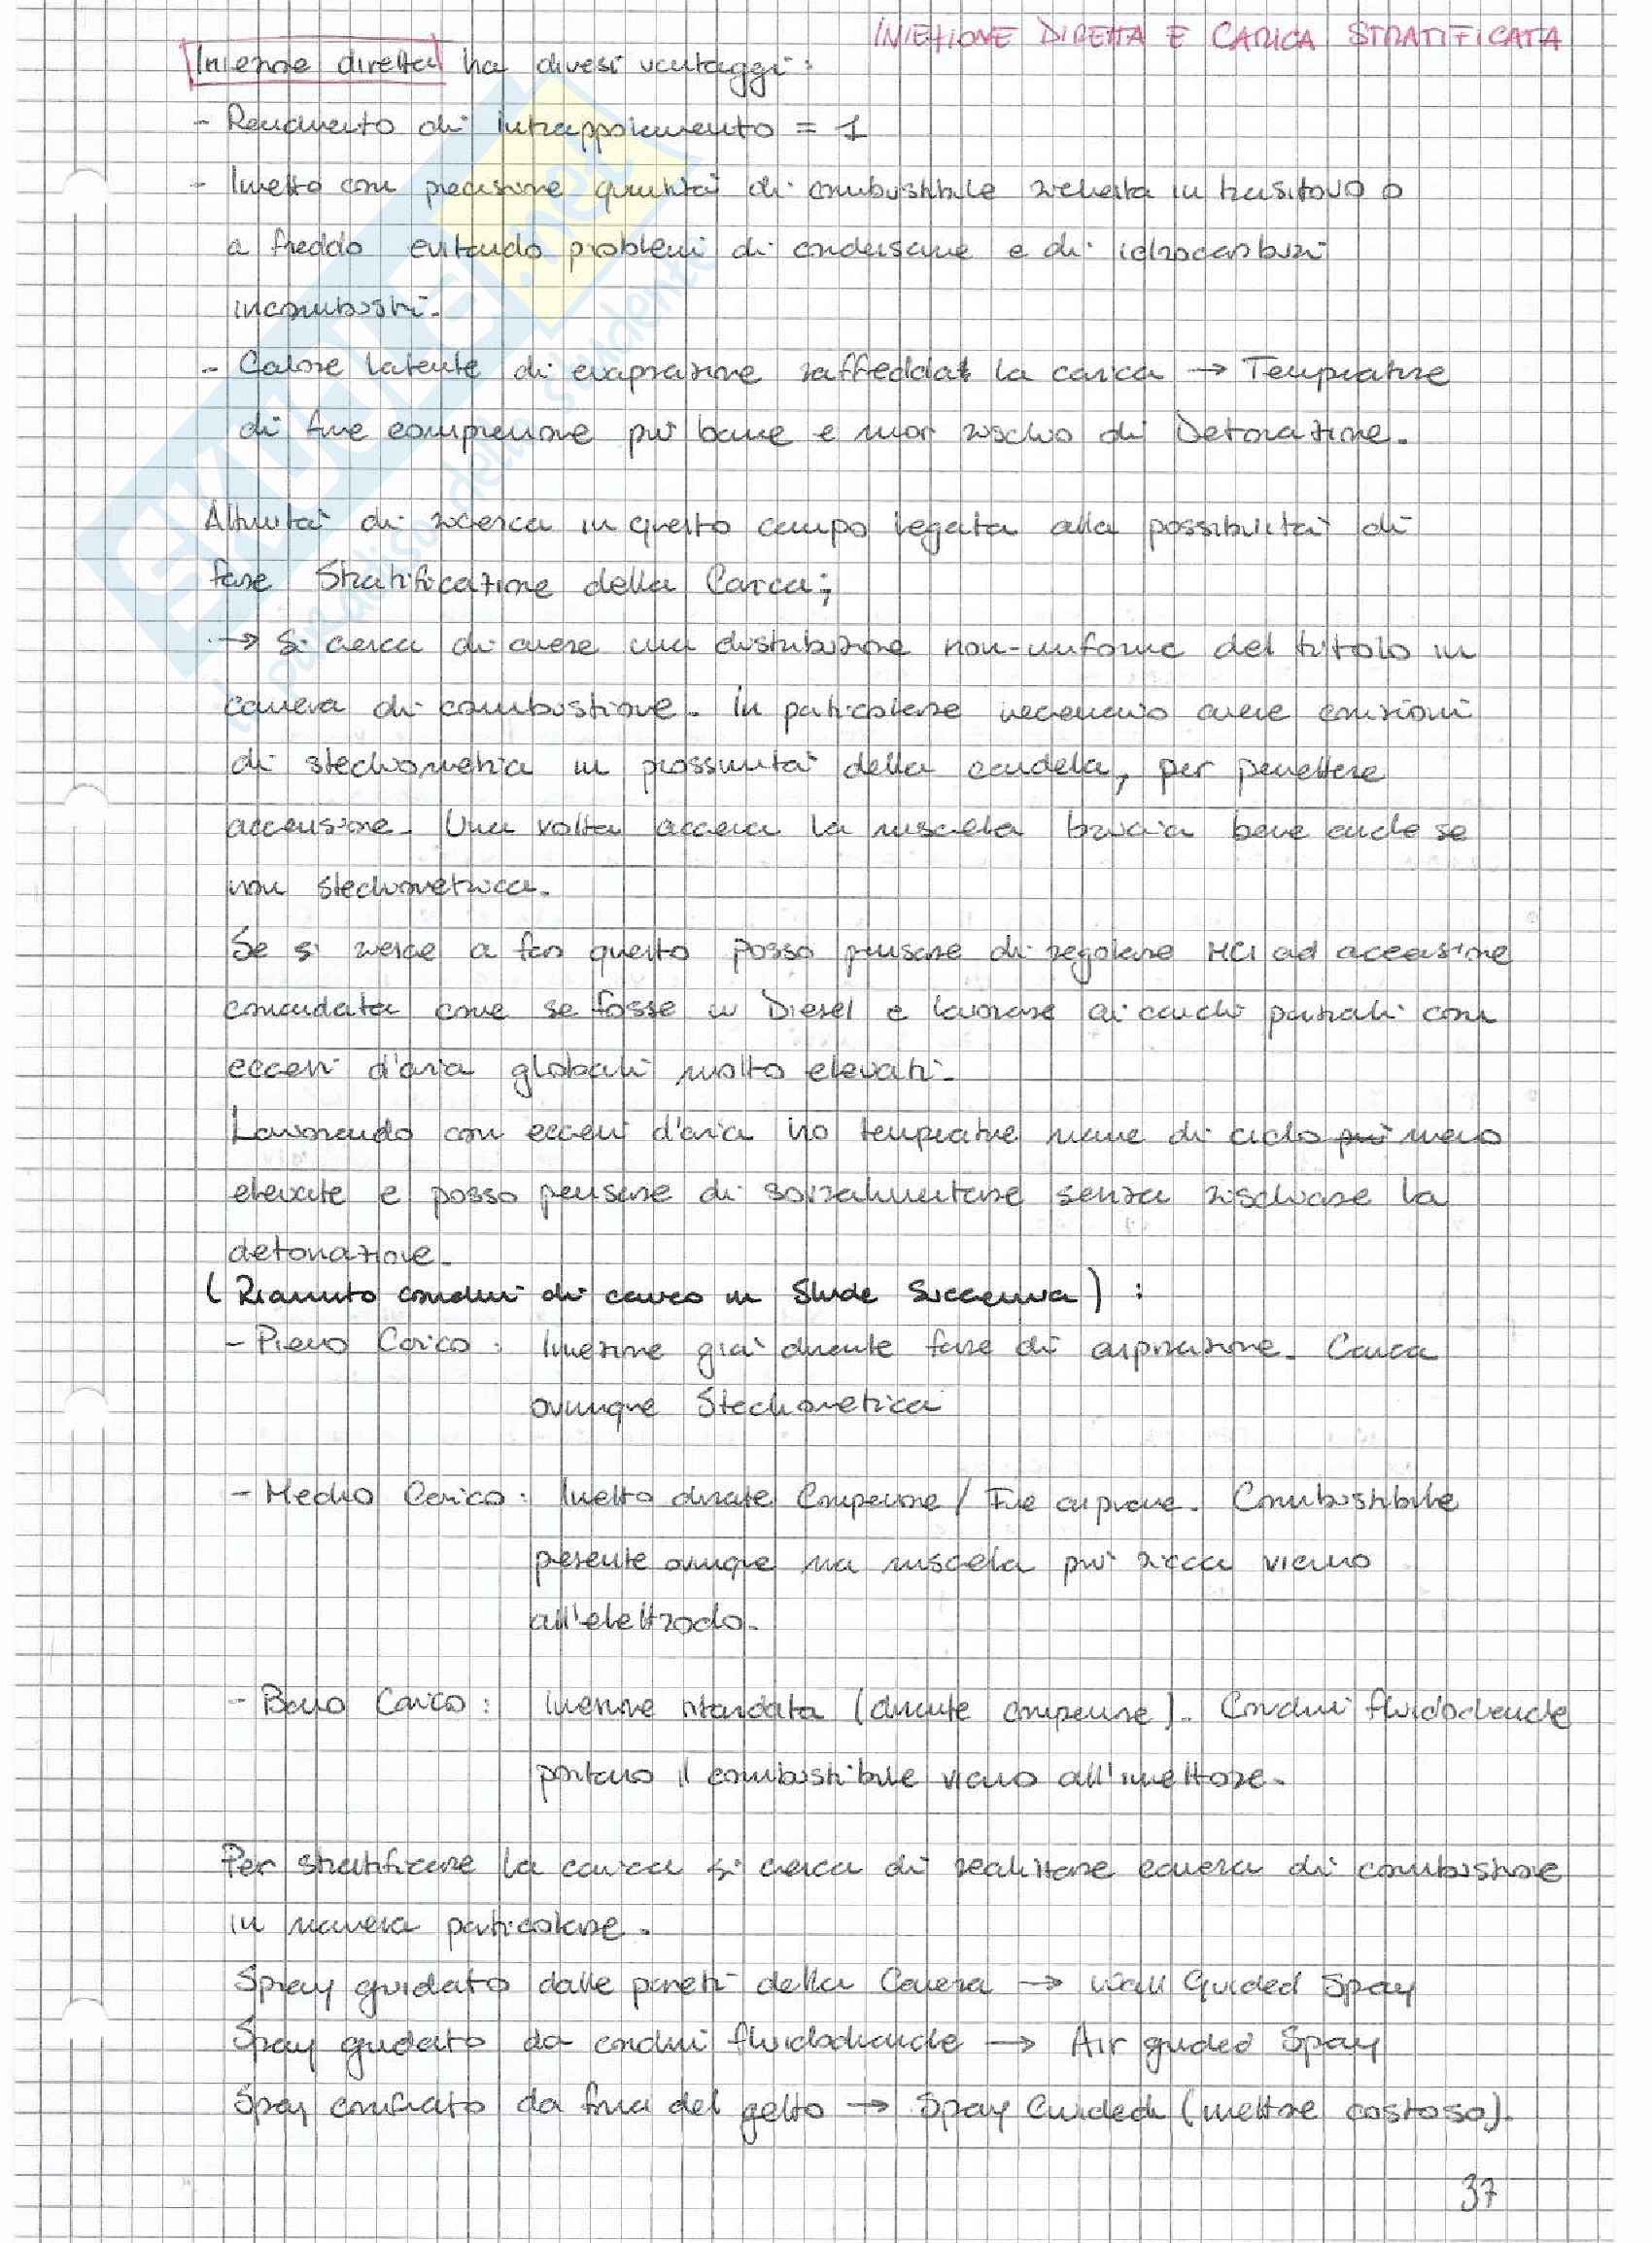 INIEZIONE DIRETTA E CARICA STRATIFICATA
Iniezione diretta ha diversi vantaggi:
- Rendimento di intrappolamento = 1
- Inietto con precisione quantità di combustibile richiesta in transitorio o
a freddo evitando problemi di condensazione e di idrocarburi
incombusti.
- Calore latente di evaporazione raffredda la carica → Temperature
di fine compressione più basse e minor rischio di Detonazione.
Attività di ricerca in questo campo legata alla possibilità di
fare Stratificazione della Carica;
→ Si cerca di avere una distribuzione non-uniforme del titolo in
camera di combustione. In particolare necessario avere condizioni
di stechiometria in prossimità della candela, per permettere
accensione. Una volta accesa la miscela brucia bene anche se
non stechiometrica.
Se si riesce a far questo posso pensare di regolare MCI ad accensione
comandata come se fosse un Diesel e lavorare ai carichi parziali con
eccessi d'aria globali molto elevati.
Lavorando con eccessi d'aria ho temperature massime di ciclo più meno
elevate e posso pensare di sovralimentare senza rischiare la
detonazione.
(Riassunto condizioni di carico in Slide Successiva) :
- Pieno Carico : Iniezione già durante fase di aspirazione. Carica
ovunque Stechiometrica
- Medio Carico : Inietto durante Compressione / Fine aspirazione. Combustibile
presente ovunque ma miscela più ricca vicino
all'elettrodo.
- Basso Carico : Iniezione ritardata (durante compressione). Condizioni fluidodinamiche
portano il combustibile vicino all'iniettore.
Per stratificare la carica si cerca di realizzare camera di combustione
in maniera particolare.
Spray guidato dalle pareti della Camera → Wall Guided Spray
Spray guidato da condizioni fluidodinamiche → Air guided Spray
Spray confinato da forma del getto → Spray Guided (iniettore costoso).
37